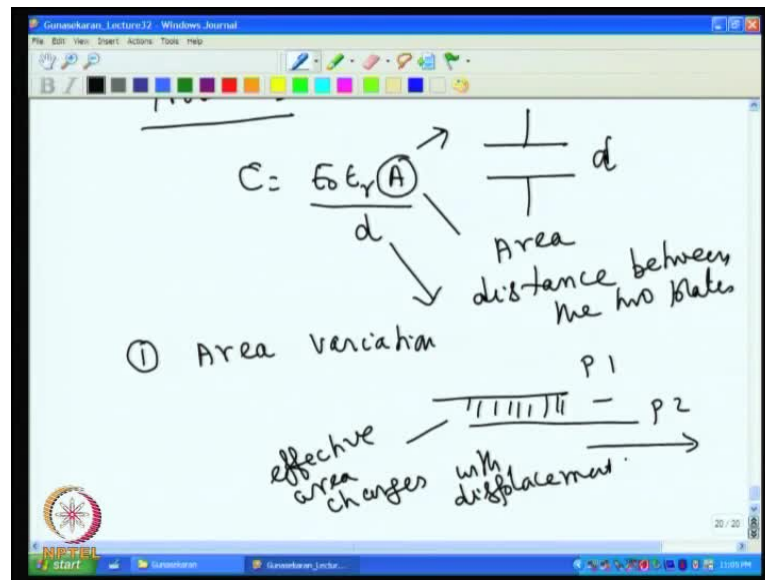 Gunasekaran_Lecture32 - Windows Journal
File Edit View Insert Actions Tools Help
B I
C = ε0 εr A
d
d
Area
distance between
the two plates
① Area variation
P1
P2
effective
area
changes with
displacement.
20 / 20
NPTEL
start Gunasekaran Gunasekaran_Lectur... 11:05 PM